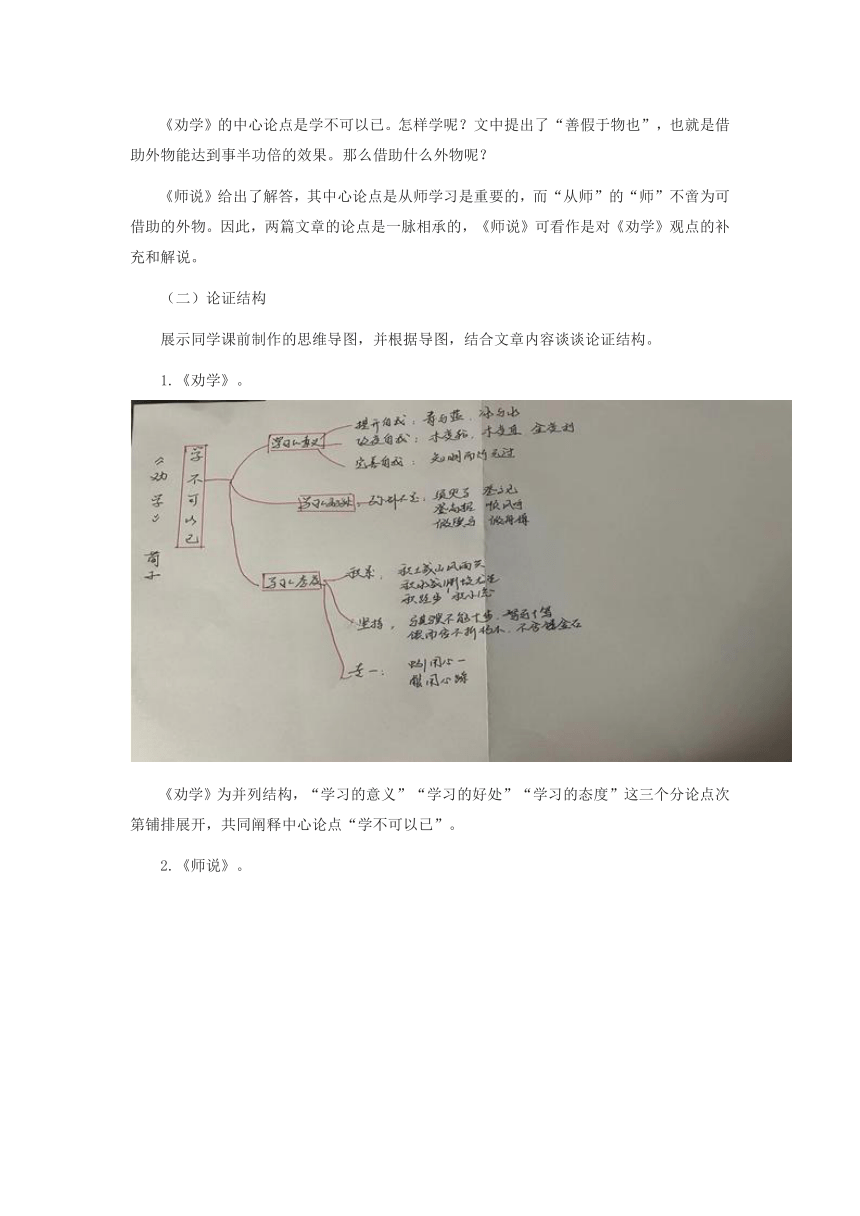 《劝学》的中心论点是学不可以已。怎样学呢？文中提出了“善假于物也”，也就是借
助外物能达到事半功倍的效果。那么借助什么外物呢？
《师说》给出了解答，其中心论点是从师学习是重要的，而“从师”的“师”不啻为可
借助的外物。因此，两篇文章的论点是一脉相承的，《师说》可看作是对《劝学》观点的补
充和解说。
（二）论证结构
展示同学课前制作的思维导图，并根据导图，结合文章内容谈谈论证结构。
1.《劝学》。
《劝学》 荀子
学不可以已
学习的意义
提升自我：青与蓝，冰与水
改变自我：木变轮，木变直，金变利
完善自我：知明而行无过
学习的好处
登高招 顺风呼
假舆马 假舟楫
学习的态度
积累：
积土成山风雨兴
积跬步 积小流
坚持：
专一：
蚓用心一
蟹用心躁
《劝学》为并列结构，“学习的意义”“学习的好处”“学习的态度”这三个分论点次
第铺排展开，共同阐释中心论点“学不可以已”。
2.《师说》。